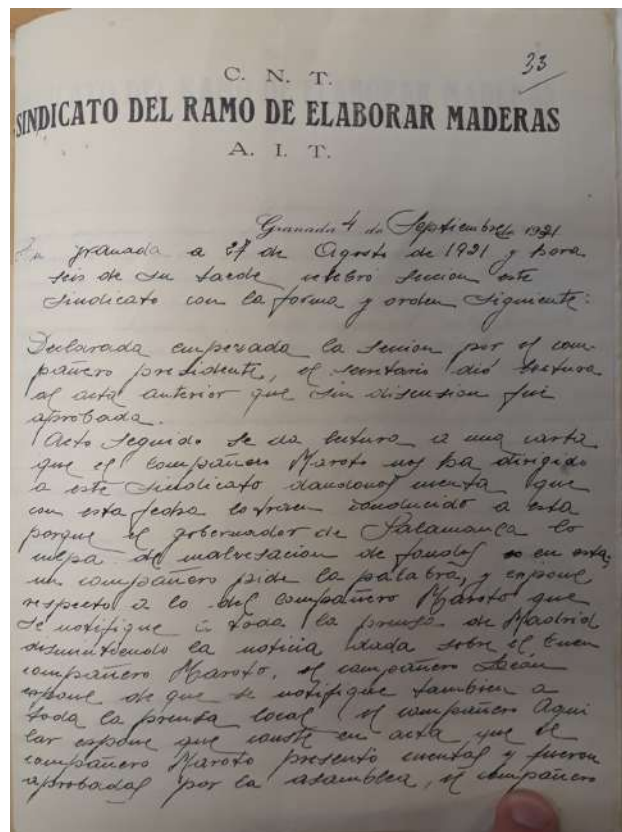 33
C. N. T.
SINDICATO DEL RAMO DE ELABORAR MADERAS
A. I. T.
Granada 4 de Septiembre de 1921
En granada a 27 de Agosto de 1921 y hora
seis de su tarde celebró secion este
Sindicato con la forma y orden siguiente:
Declarada empezada la secion por el com-
pañero presidente, el secretario dió lectura
al acta anterior que sin discusion fue
aprobada.
Acto seguido se da lectura a una carta
que el compañero Maroto nos ha dirigido
a este Sindicato dandonos cuenta que
con esta fecha lo traen conducido a esta
porque el gobernador de Salamanca lo
culpa de malvesacion de fondos en esta,
un compañero pide la palabra, y expone
respecto a lo del compañero Maroto que
se notifique a toda la prensa de Madrid
desmintiendo la noticia dada sobre el buen
compañero Maroto, el compañero
expone de que se notifique tambien a
toda la prensa local, el compañero Agui
lar expone que conste en acta que el
compañero Maroto presento cuentas y fueron
aprobadas por la asamblea, el compañero